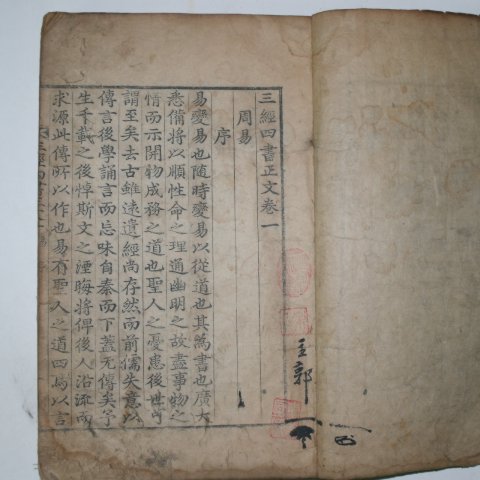 三經四書正文卷一
周易
序
易變易也隨時變易以從道也其爲書也廣大
悉備將以順性命之理通幽明之故盡事物之
情而示開物成務之道也聖人之憂患後世可
謂至矣去古雖遠遺經尚存然而前儒失意以
傳言後學誦言而忘味自秦而下蓋无傳矣予
生千載之後悼斯文之湮晦將俾後人沿流而
求源此傳所以作也易有聖人之道四焉以言
主郭